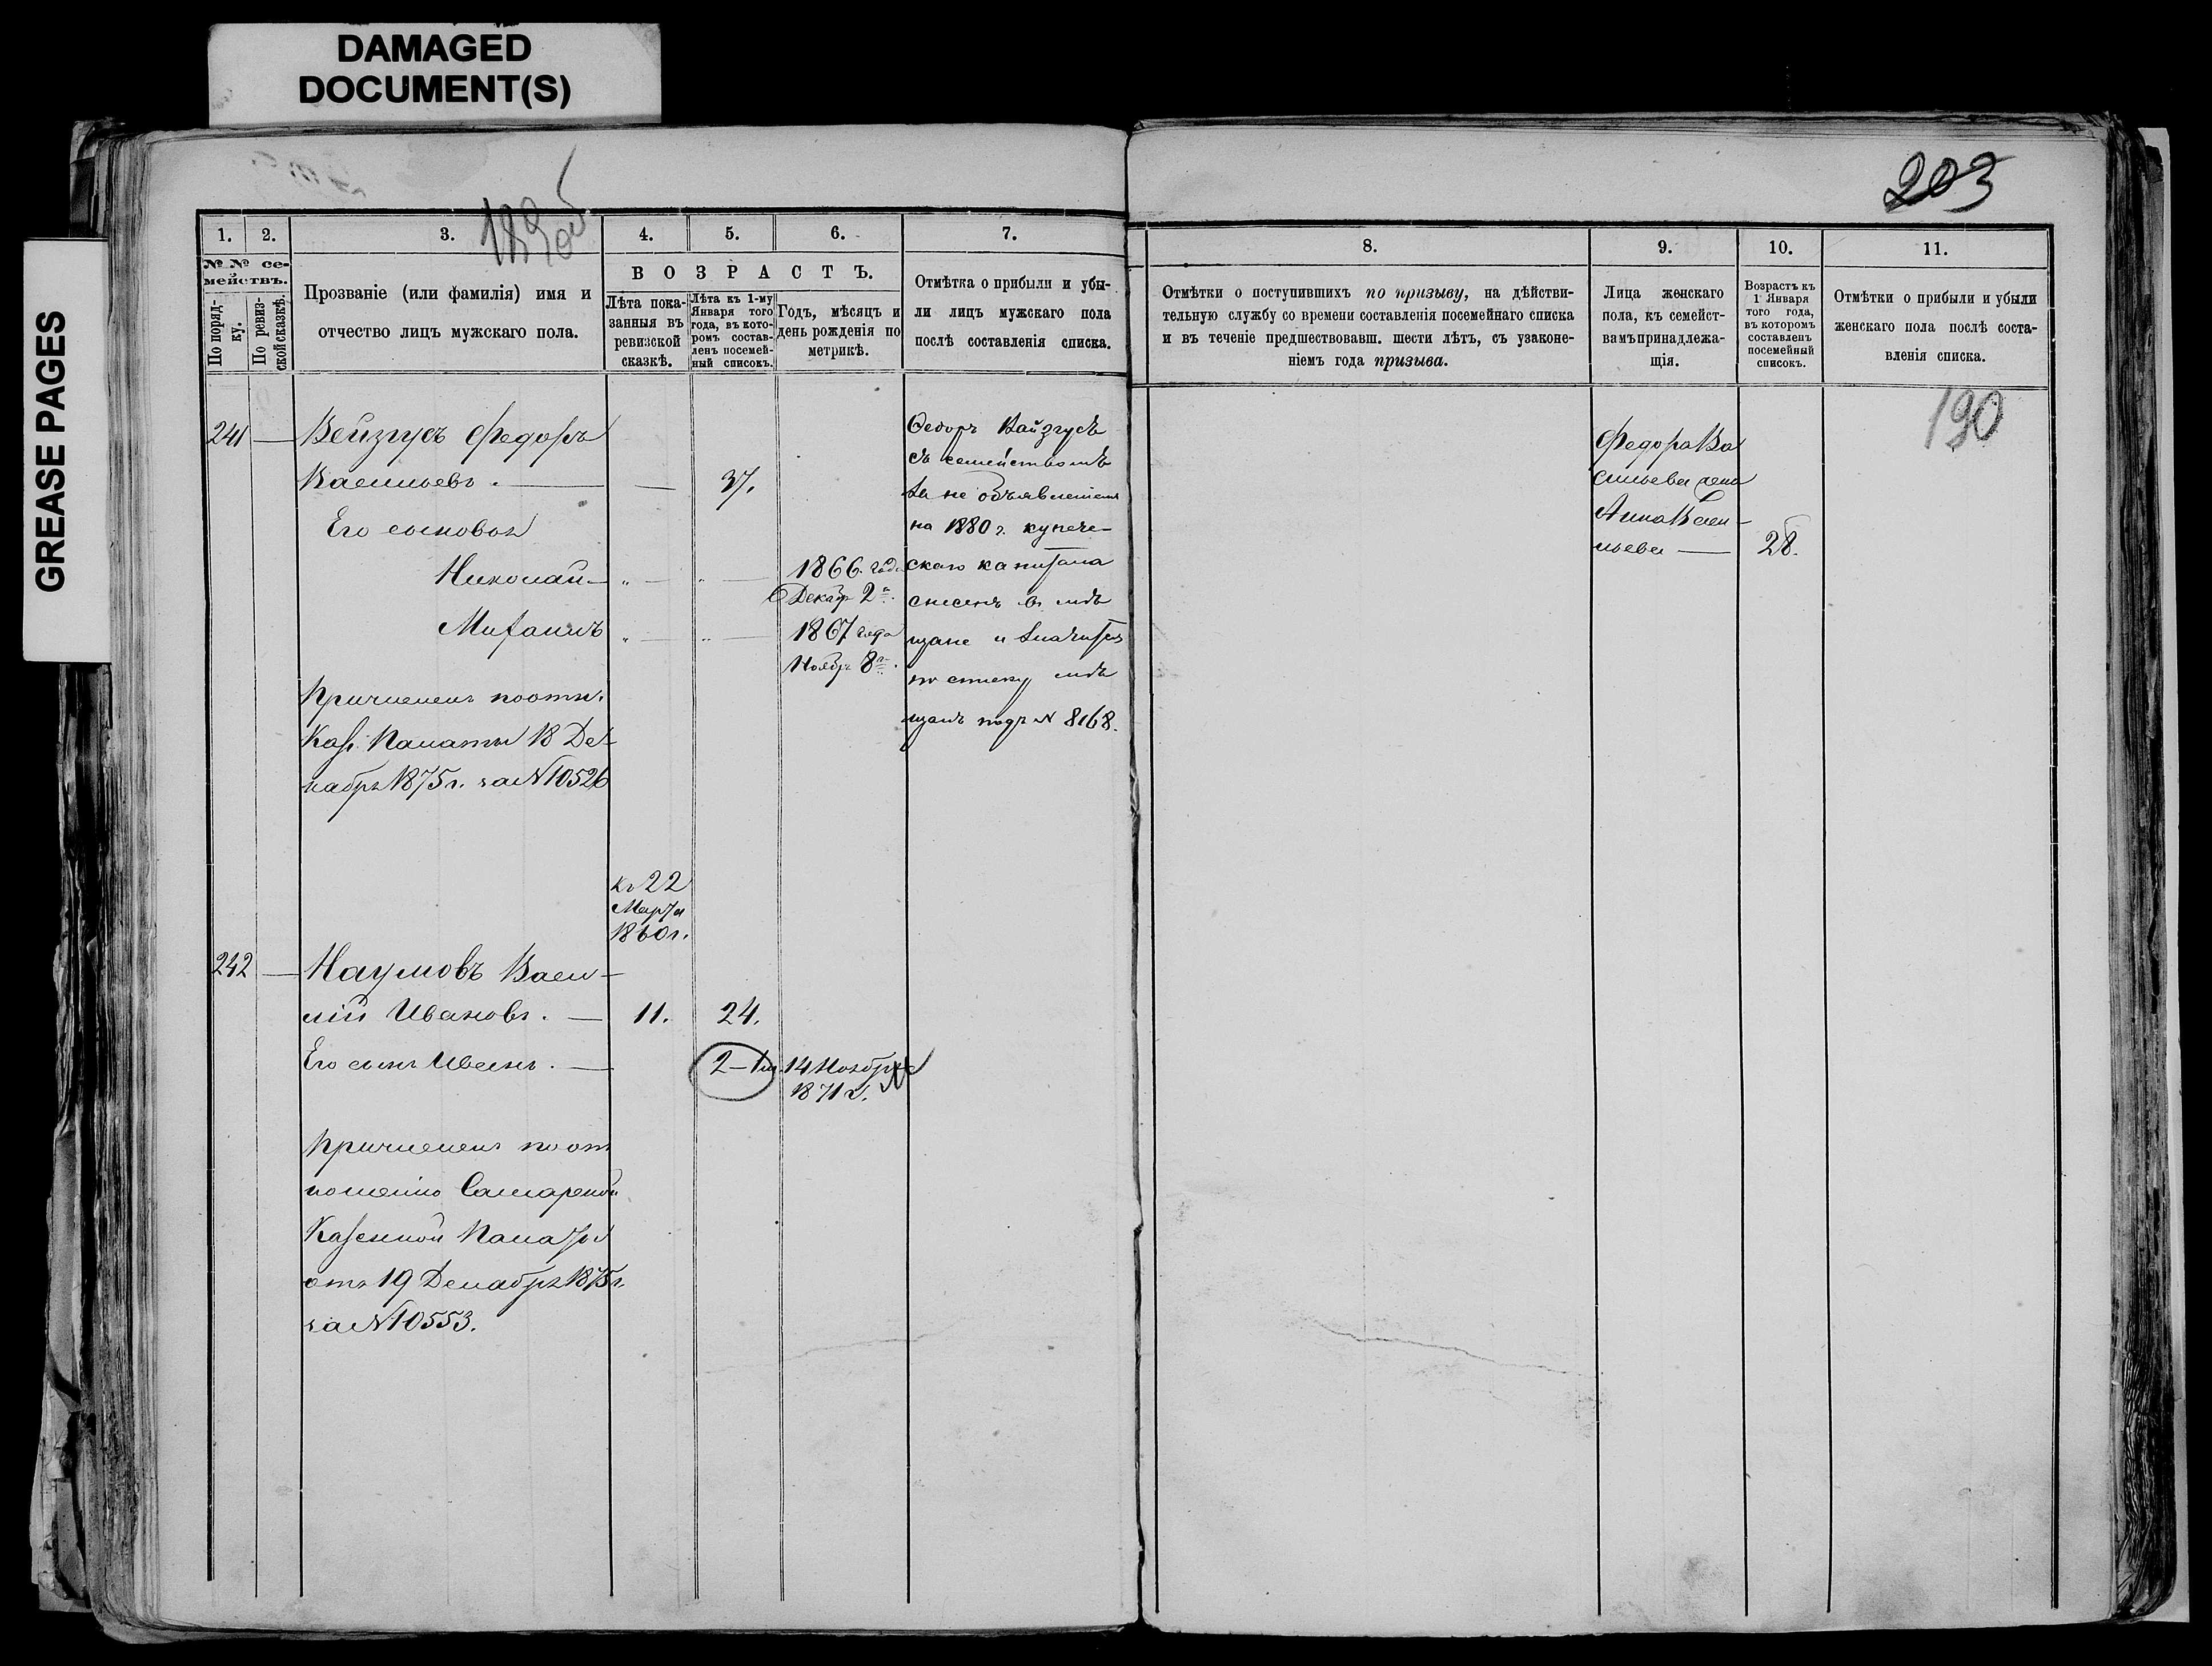 DAMAGED
DOCUMENT(S)
GREASE PAGES
203
1. 2. 3. 4. 5. 6. 7.
№№ се-
мействъ.
По поряд-
ку.
По ревиз-
ской сказкѣ.
Прозваніе (или фамилія) имя и
отчество лицъ мужскаго пола.
ВОЗРАСТЪ.
Лѣта пока-
занныя въ
ревизской
сказкѣ.
Лѣта къ 1-му
Января того
года, въ кото-
ромъ состав-
ленъ посемей-
ный списокъ.
Годъ, мѣсяцъ и
день рожденія по
метрикѣ.
Отмѣтка о прибыли и убы-
ли лицъ мужскаго пола
послѣ составленія списка.
241 — Вейзгусъ Федоръ
Васильевъ. — — 37.
Его сыновья
Николай — „ — „ — 1866. года
Декабр 2го.
„ — „ — 1867 года
Ноябр 8го.
Причисленъ по отн.
Каз. Палаты 18 Де-
кабря 1875 г. за № 10526
Федоръ Вайзгусъ
съ семействомъ
за не объявленіемъ
на 1880 г. купече-
скаго капитала
снесенъ въ мѣ
щане и значится
по списку мѣ
щанъ подъ № 8168.
къ 22
Марта
1860 г.
242 — Наумовъ Васи-
лій Ивановъ. — 11. 24.
Его сынъ Иванъ. — 2-1м. 14 Ноября
1871 г.
Причисленъ по от
ношенію Самарской
Казенной Палаты
отъ 19 Декабря 1875 г.
за № 10553.
8. 9. 10. 11.
Отмѣтки о поступившихъ по призыву, на дѣйстви-
тельную службу со времени составленія посемейнаго списка
и въ теченіе предшествовавш. шести лѣтъ, съ узаконе-
ніемъ года призыва.
Лица женскаго
пола, къ семейст-
вамъ принадлежа-
щія.
Возрастъ къ
1 Января
того года,
въ которомъ
составленъ
посемейный
списокъ.
Отмѣтки о прибыли и убыли
женскаго пола послѣ соста-
вленія списка.
190
Федора Ва
сильева жена
Анна Васи-
льева — 28.